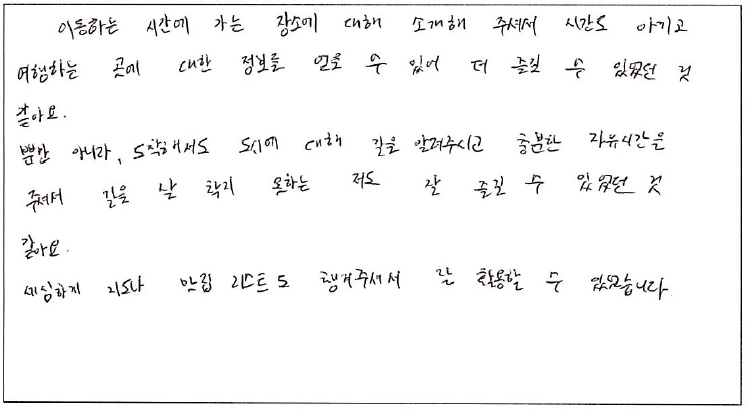 이동하는 시간에 가는 장소에 대해 소개해 주셔서 시간도 아끼고
여행하는 곳에 대한 정보를 얻을 수 있어 더 즐길 수 있었던 것
같아요.
뿐만 아니라, 도착해서도 도시에 대해 길을 알려주시고 충분한 자유시간을
주셔서 길을 잘 찾지 못하는 저도 잘 즐길 수 있었던 것
같아요.
세심하게 지도나 맛집 리스트도 챙겨주셔서 잘 활용할 수 있었습니다.